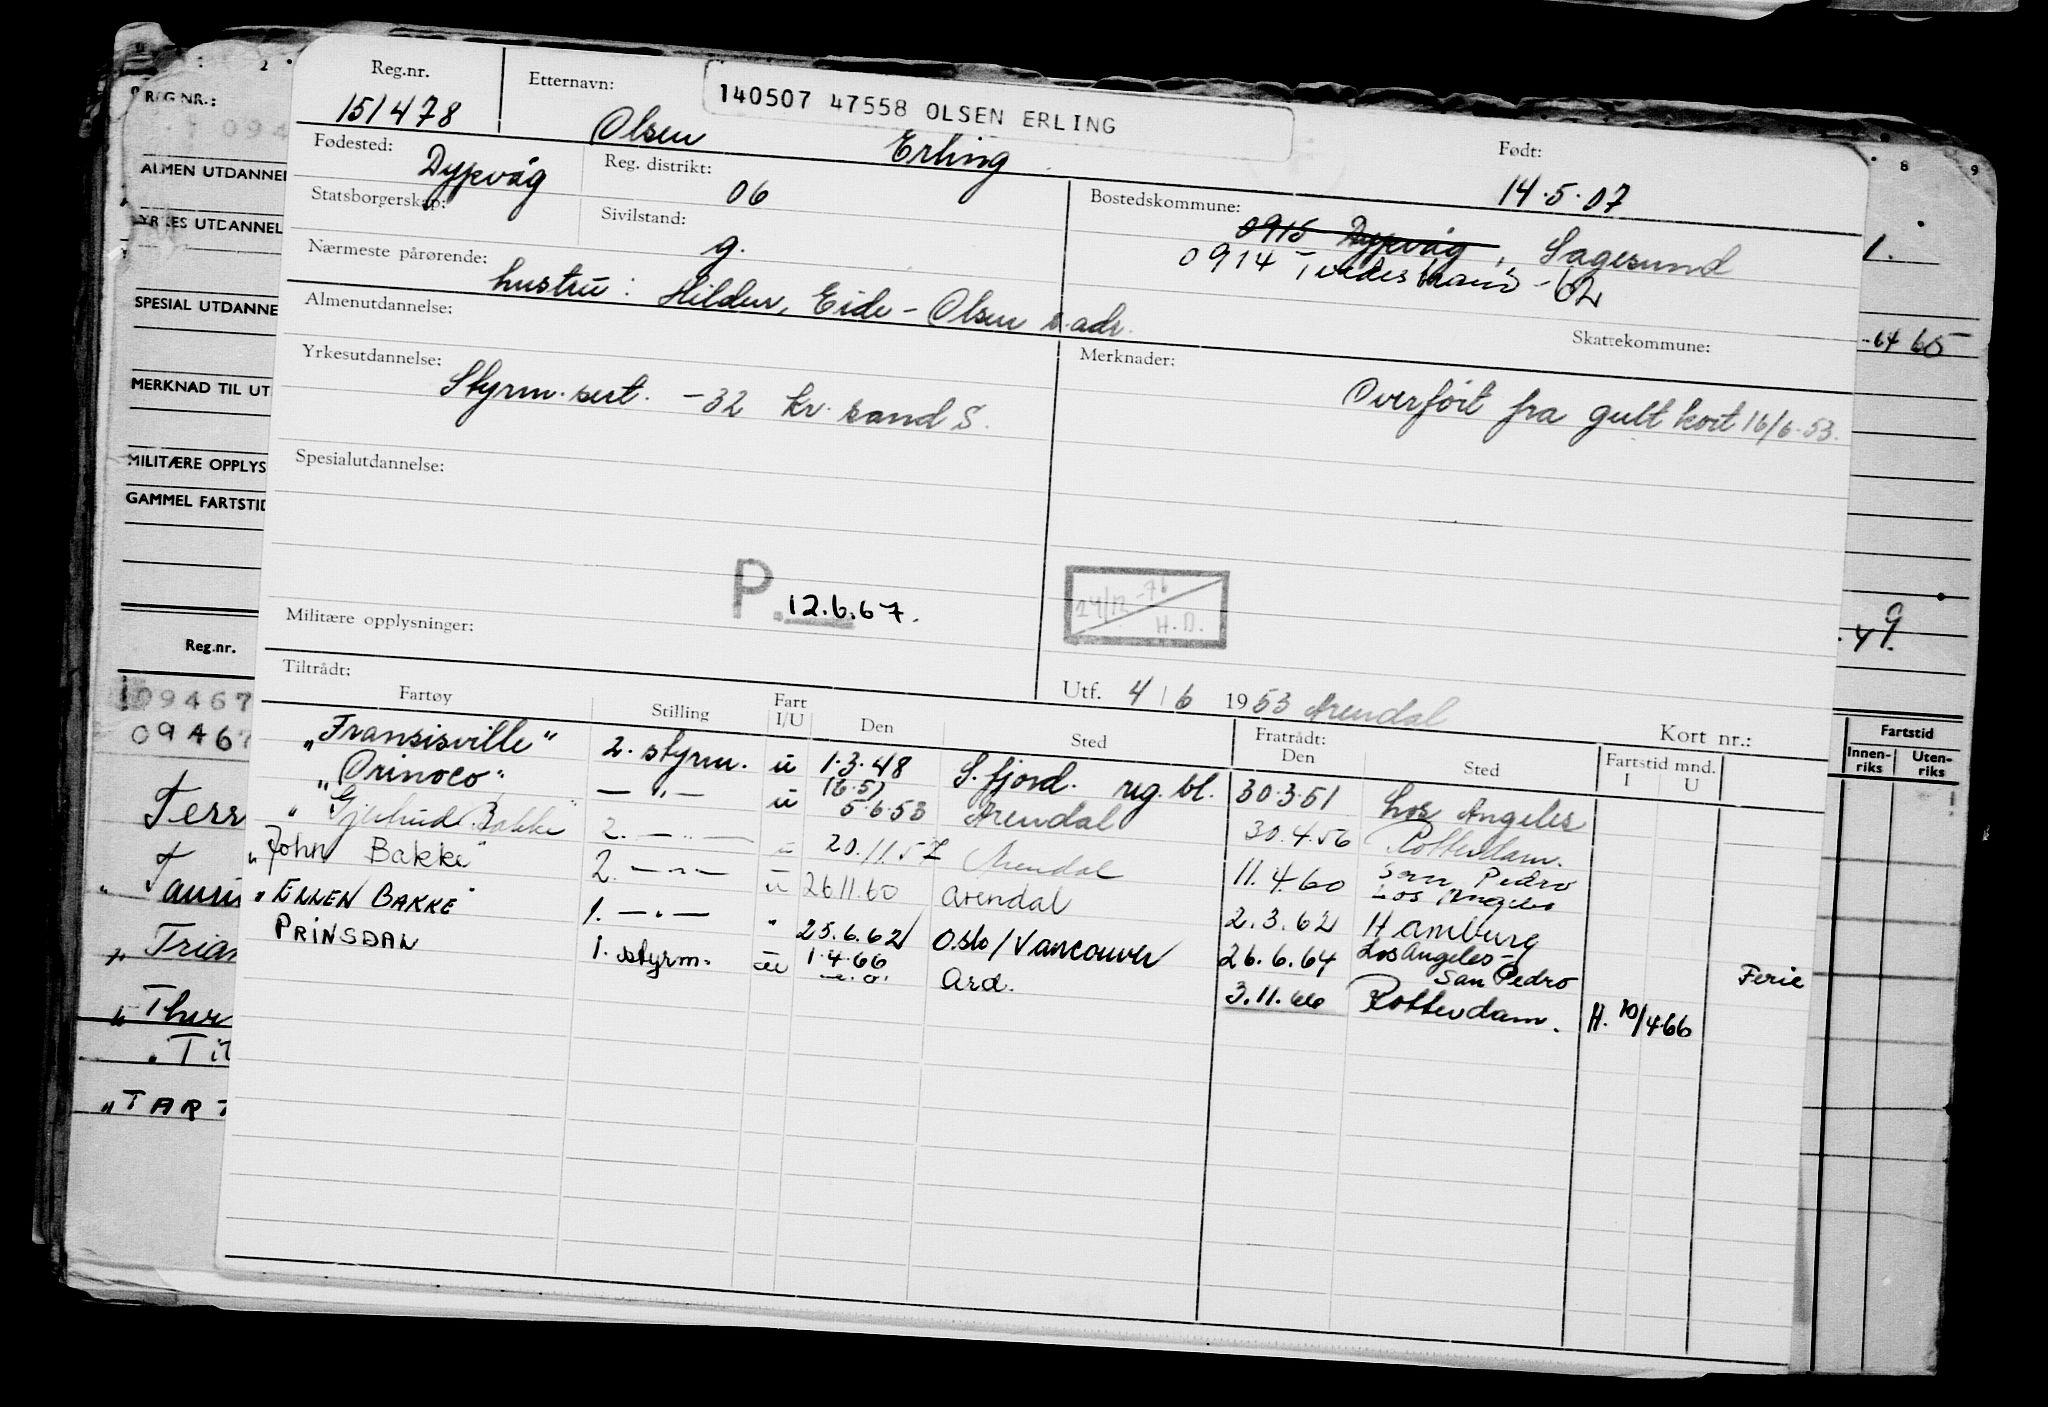 Reg.nr. Etternavn: 140507 47558 OLSEN ERLING
151478 Olsen Erling
Født: 14.5.07
Fødested: Dypvåg Reg. distrikt: 06
Statsborgerskap: Sivilstand: g.
Bostedskommune: 0915 Dypvåg, Sagesund
0914 Tvedestrand - 62
Nærmeste pårørende: hustru: Hildur, Eide - Olsen s. adr.
Almenutdannelse: Skattekommune:
Yrkesutdannelse: Styrm. sert. -32 kr. sand S.
Merknader: Overført fra gult kort 16/6-53.
Spesialutdannelse:
P. 12.6.67.
24/12-76
H.D.
Militære opplysninger:
Utf. 4/6 1953 Arendal
Tiltrådt: Fratrådt: Kort nr.:
Fartøy Stilling Fart I/U Den Sted Den Sted Fartstid mnd. I U
"Fransisville" 2. styrm. u 1.3.48 S. fjord. reg. bl. 30.3.51 Los Angeles
"Orinoco" — " — u 5.6.53 Arendal 30.4.56 Rotterdam.
" Bakke" 2. — " — 20.11.57 Arendal 11.4.60 San Pedro
Los Angeles
"John Bakke" 2. — " — u 26.11.60 Arendal 2.3.62 Hamburg
"ELLEN BAKKE" 1. — " — " 25.6.62 Oslo/Vancouver 26.6.64 Los Angeles -
San Pedro Ferie
PRINSDAL 1. styrm. u 1.4.66 Ard. 3.11.66 Rotterdam. H. 20/4.66
REG NR.:
094
ALMEN UTDANNEL
YRKES UTDANNEL
SPESIAL UTDANNE
MERKNAD TIL UT
MILITÆRE OPPLYS
GAMMEL FARTSTID
Reg.nr.
109467
09467
Terr
" Tauru
" Trian
" Thor
" Tit
"TART
2
8 9
1.
-64 65
. 49.
Fartstid
Innen-riks Uten-riks